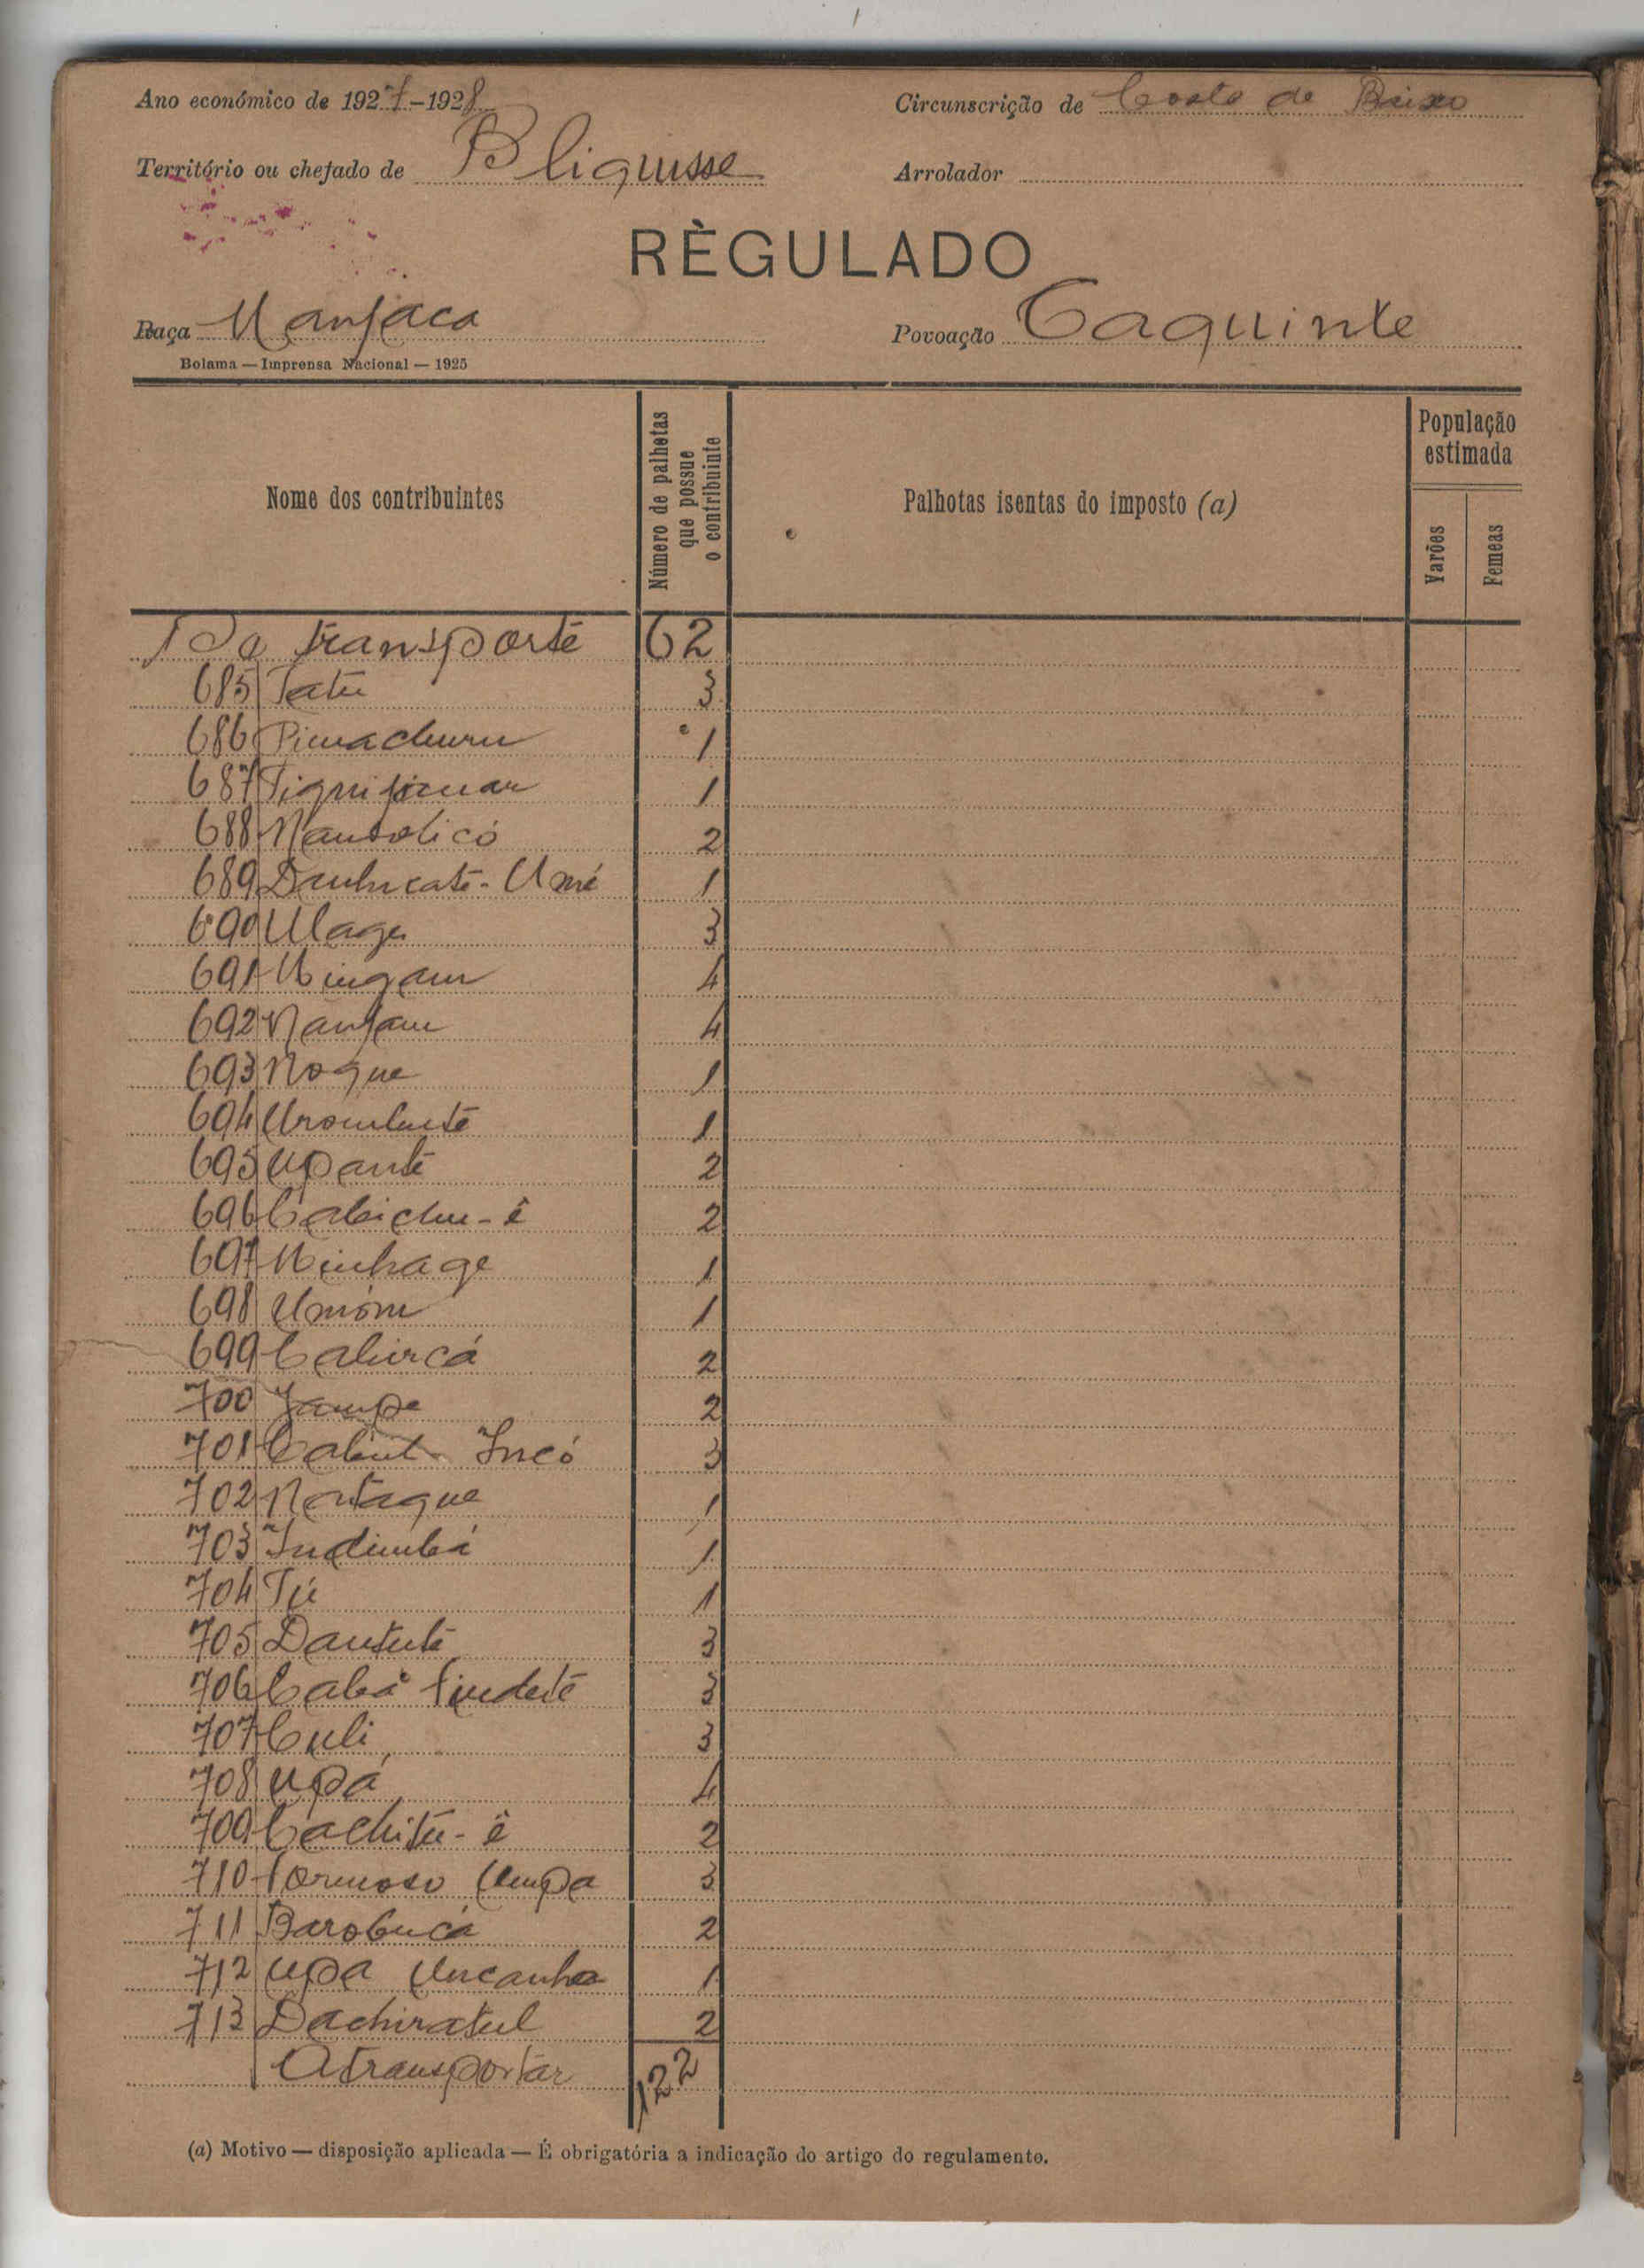 Ano económico de 1927-1928
Circunscrição de Costa de Baixo
Território ou chefado de Bliquisse
Arrolador
RÈGULADO
Raça Manjaca
Povoação Caquinte
Bolama — Imprensa Nacional — 1925
Nome dos contribuintes
Número de palhotas que possue o contribuinte
Palhotas isentas do imposto (a)
População estimada
Varões
Femeas
Do transporte 62
685 Tatu 3
686 1
687 1
688 2
689 1
690 Ulage 3
691 Mingam 4
692 Nanjam 4
693 Noque 1
694 1
695 Upanté 2
696 Cabichu-ê 2
697 Minhage 1
698 Umóm 1
699 2
700 Jampe 2
701 3
702 Nontaque 1
703 Indimbá 1
704 Tú 1
705 Dantuté 3
706 Cabá 3
707 Culi 3
708 Upá 4
709 Cachitu-ê 2
710 Formoso Umpa 3
711 Barobucá 2
712 Upa Uncanha 1
713 Dachiratul 2
A transportar 122
(a) Motivo — disposição aplicada — É obrigatória a indicação do artigo do regulamento.